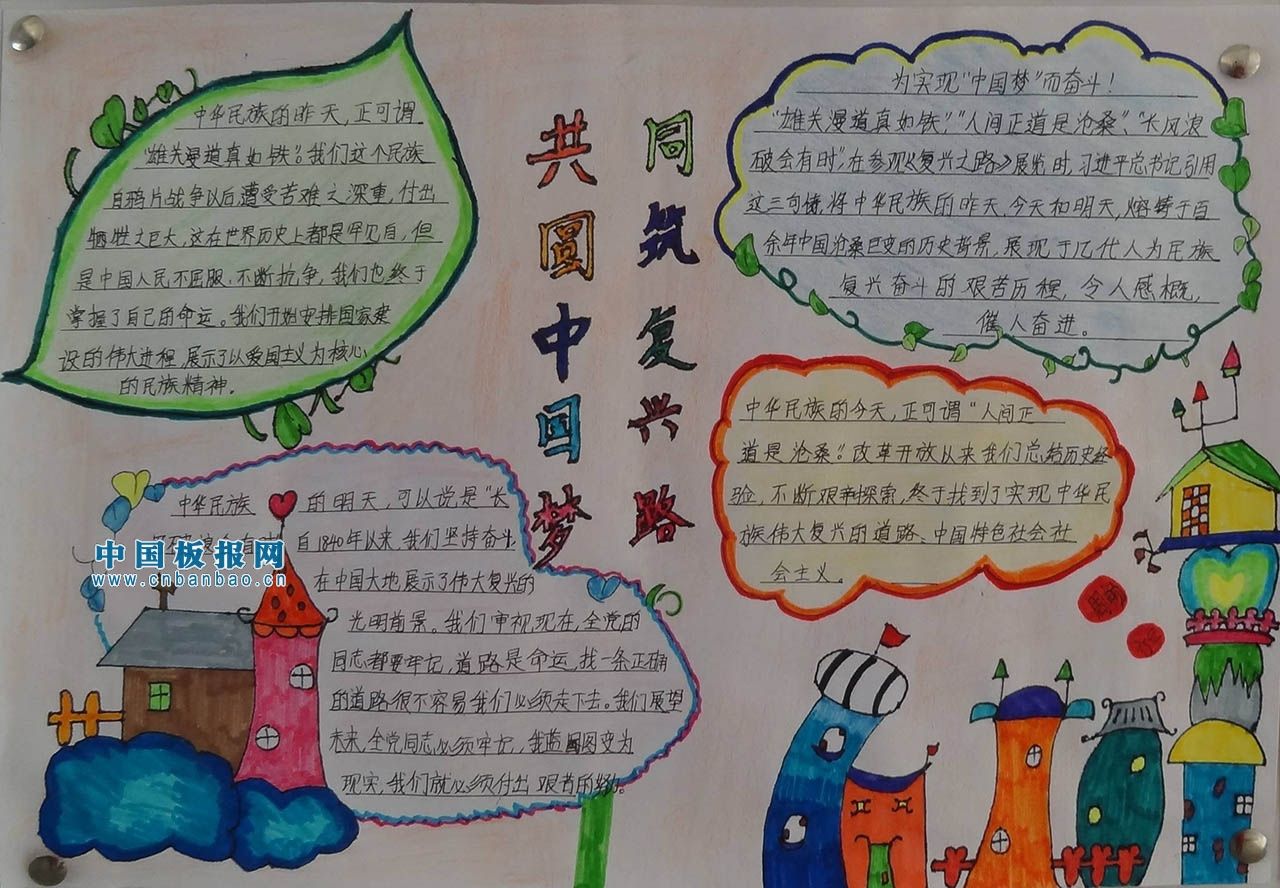 同筑复兴路
共圆中国梦
中华民族的昨天,正可谓
"雄关漫道真如铁"。我们这个民族
自鸦片战争以后,遭受苦难之深重,付出
牺牲之巨大,这在世界历史上都是罕见自,但
是中国人民不屈服、不断抗争,我们也终于
掌握了自己的命运。我们开始安排国家建
设的伟大进程,展示了以爱国主义为核心
的民族精神。
为实现"中国梦"而奋斗!
"雄关漫道真如铁","人间正道是沧桑"、"长风浪
破会有时"在参观《复兴之路》展览时,习近平总书记引用
这三句诗,将中华民族的昨天、今天和明天,熔铸于百
余年中国沧桑巨变的历史背景,展现于几代人为民族
复兴奋斗的艰苦历程,令人感概,
催人奋进。
中华民族的今天,正可谓"人间正
道是沧桑"。改革开放以来我们总结历史经
验,不断艰辛探索,终于找到了实现中华民
族伟大复兴的道路、中国特色社会社
会主义。
中华民族的明天,可以说是"长
自1840年以来,我们坚持奋斗,
在中国大地展示了伟大复兴的
光明前景。我们审视现在,全党的
同志都要牢记,道路是命运,找一条正确
的道路很不容易我们必须走下去。我们展望
未来,全党同志必须牢记,我蓝图变为
现实,我们就必须付出艰苦的努力。
中国板报网
www.cnbanbao.cn